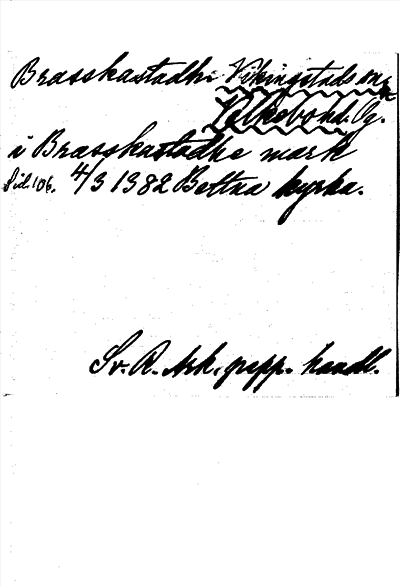 Brasskastadhe Vikingstads sn
Valkebo hd. Ög.
i Brasskastadhe mark
Sid. 106. 4/3 1382 Bettna kyrka.
Sv. R. Ark. papp. handl.